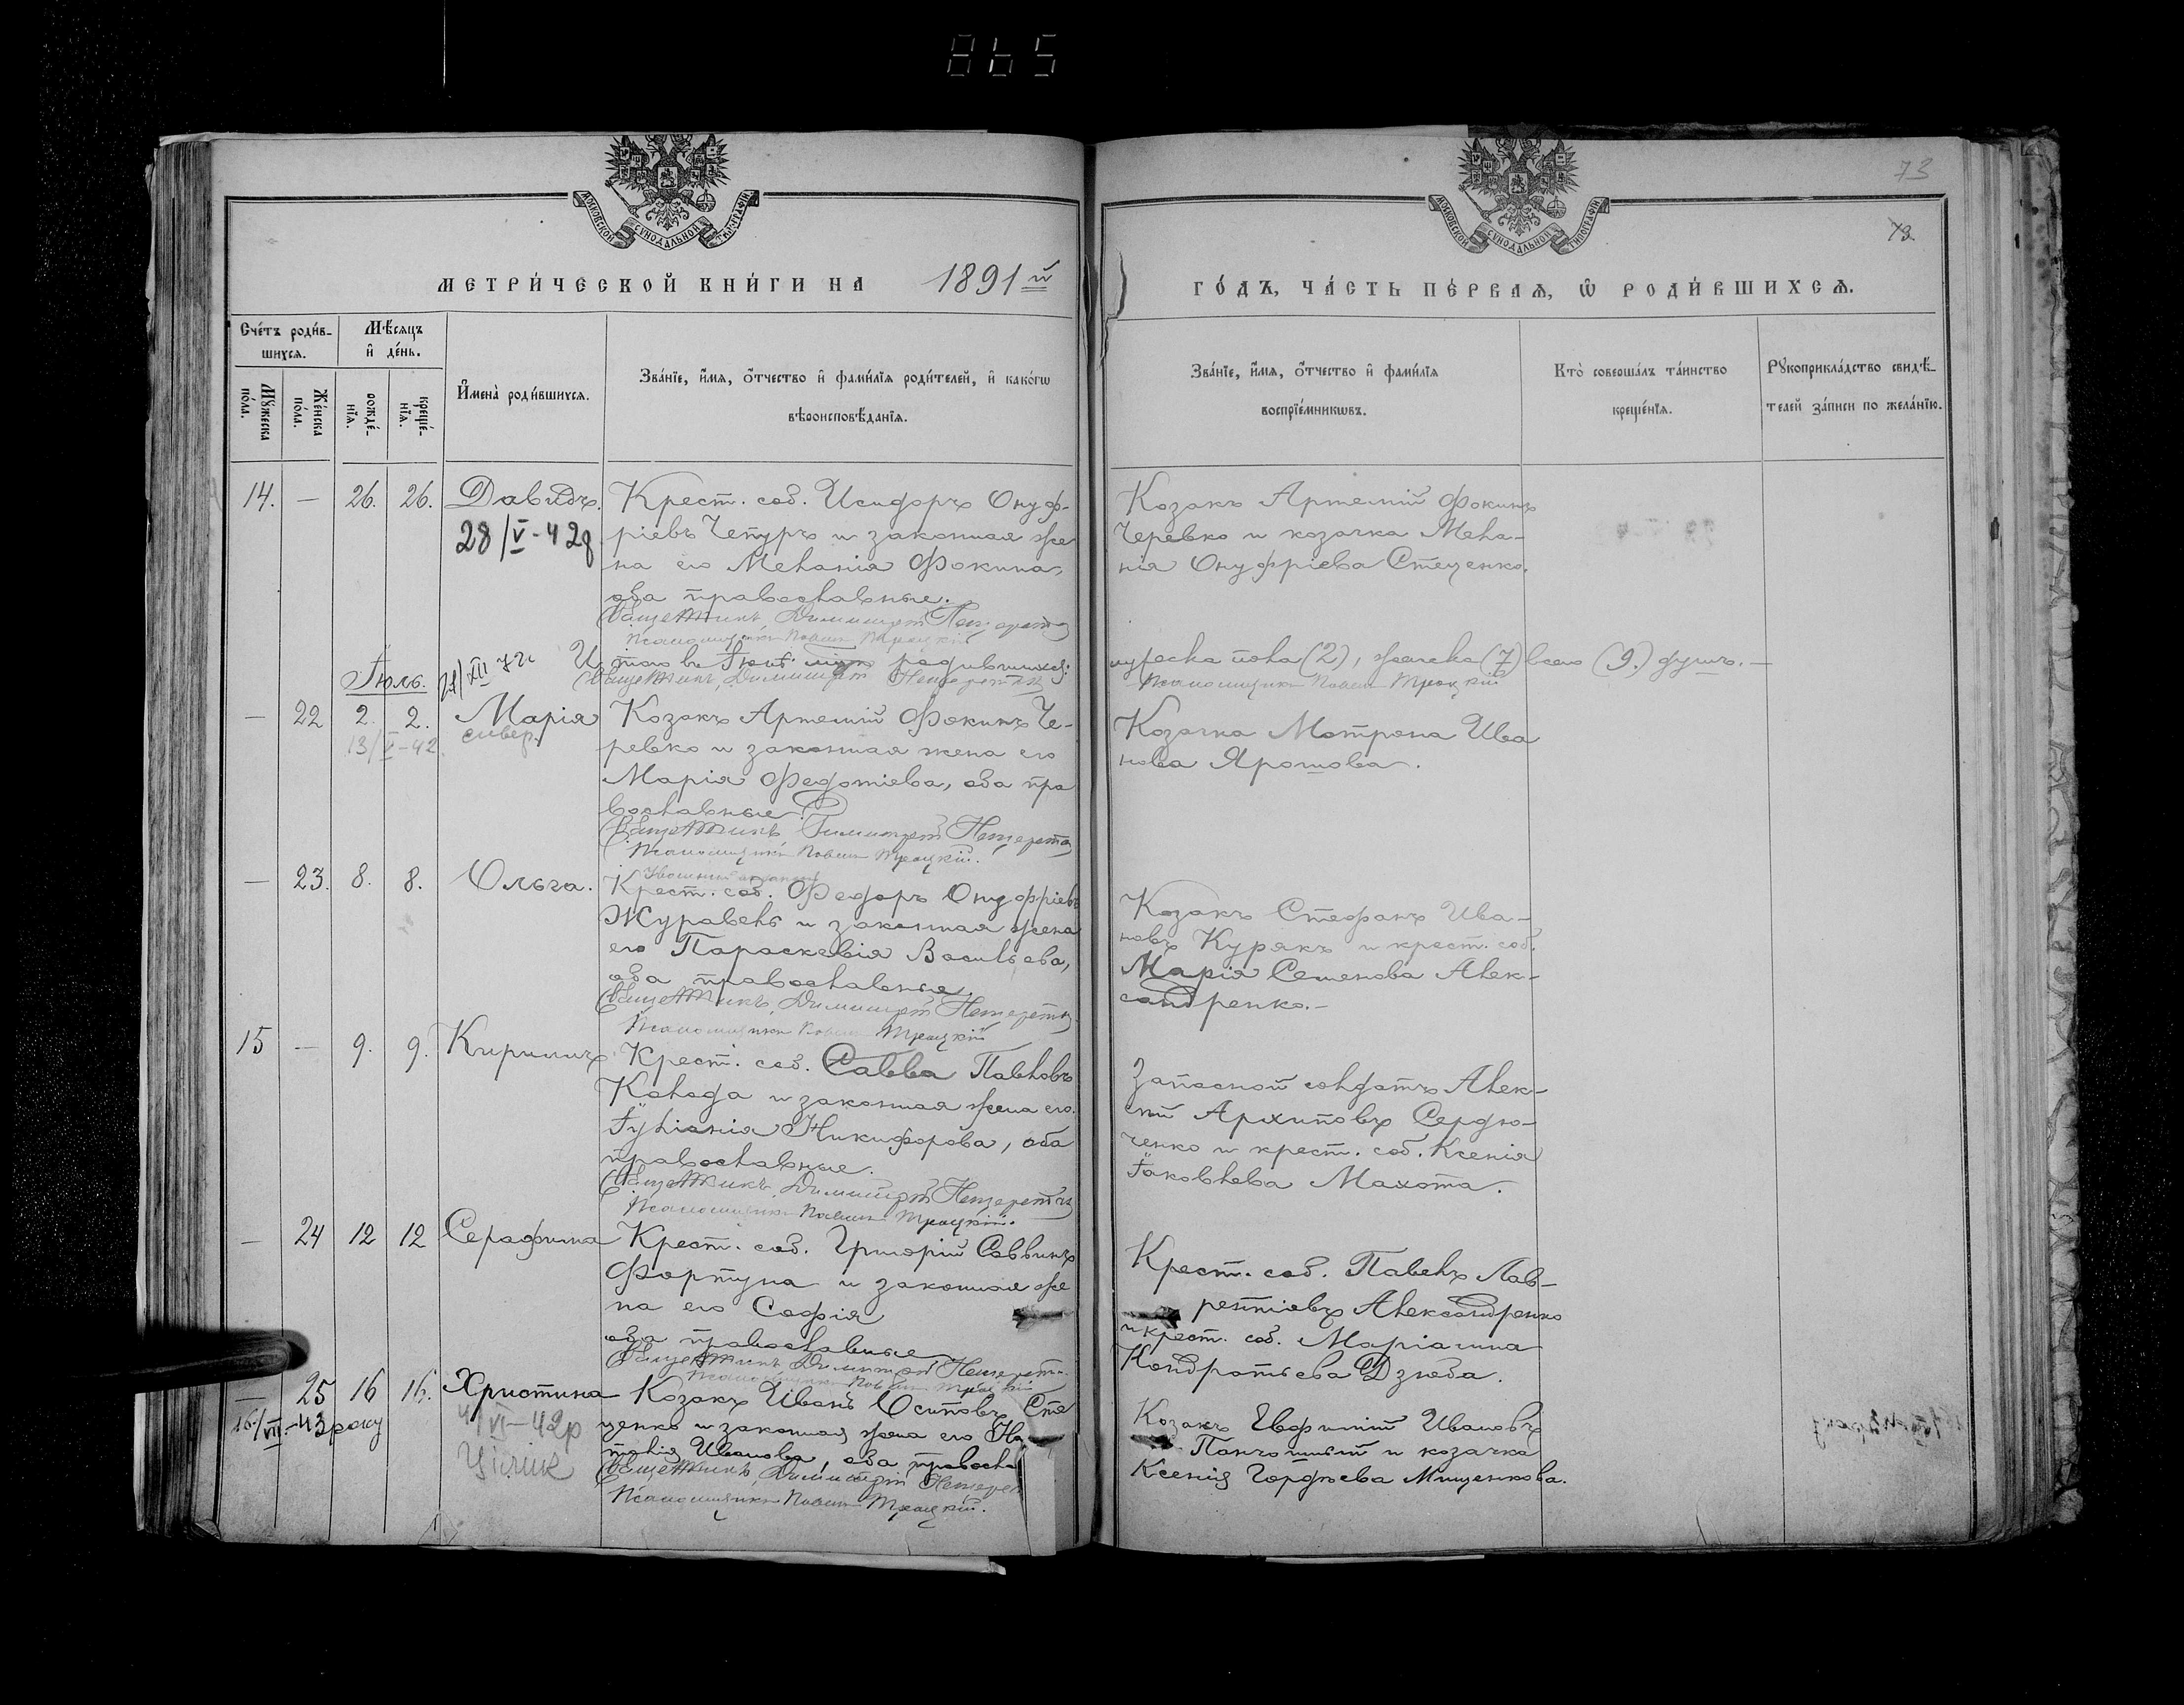 865
73
73.
МОСКОВСКОЙ СѴНОДАЛЬНОЙ ТИПОГРАФІИ
МОСКОВСКОЙ СѴНОДАЛЬНОЙ ТИПОГРАФІИ
МЕТРИ́ЧЕСКОЙ КНИ́ГИ НА 1891й
ГО́ДЪ, ЧА́СТЬ ПЕ́РВАЯ, Ѡ РОДИ́ВШИХСЯ.
Сче́тъ роди́в-
шихся.
Мѣ́сяцъ
и҆ де́нь.
Мꙋ́жеска по́ла.
Же́нска по́ла.
рожде́-
нїя.
креще́-
нїя.
И҆мена̀ роди́вшихся.
Зва́нїе, и҆́мя, ѻ҆́тчество и҆ фами́лїя роди́телей, и҆ како́гѡ
вѣроисповѣ́данїя.
Зва́нїе, и҆́мя, ѻ҆́тчество и҆ фами́лїя
воспрїе́мникѡвъ.
Кто̀ соверша́лъ та́инство
креще́нїя.
Рꙋкоприкла́дство свидѣ́-
телей за́писи по жела́нїю.
14. — 26. 26. Давидъ.
28/V-42р
Крест. соб. Исидоръ Онуф-
ріевъ Чепуръ и законная же
на его Меланія Фокина,
оба православные.
Священникъ Димитрій
Псаломщикъ Павелъ Троцкій
Козакъ Артемій Фокинъ
Черевко и козачка Мела-
нія Онуфріева Стеценко.
Итого въ Іюнѣ м-цѣ родившихся:
мужеска пола (2), женска (7) всего (9.) душъ. —
Священникъ Димитрій
Псаломщикъ Павелъ Троцкій
Іюль.
21/XII 72г
— 22 2. 2. Марія
13/V-42.
Козакъ Артемій Фокинъ Че-
ревко и законная жена его
Марія Федотіева, оба пра
вославные.
Священникъ Димитрій
Псаломщикъ Павелъ Троцкій.
Козачка Мотрона Ива
нова Ярошова.
— 23. 8. 8. Ольга.
Крест. соб. Федоръ Онуфріевъ
Журавель и законная жена
его Параскевія Васильева,
оба православные.
Священникъ Димитрій
Псаломщикъ Павелъ Троцкій
Козакъ Стефанъ Ива-
новъ Курякъ и крест. соб.
Марія Семенова Алек-
сандренко.-
15 — 9. 9. Кириллъ
Крест. соб. Савва Павловъ
Колода и законная жена его
Іуліанія Никифорова, оба
православные.
Священникъ Димитрій
Псаломщикъ Павелъ Троцкій.
Запасной солдатъ Алек-
сѣй Архиповъ Сердю-
ченко и крест. соб. Ксенія
Іаковлева Махота.
— 24 12 12 Серафима
Крест. соб. Григорій Саввинъ
Фортуна и законная же
на его Софія
оба православные
Священникъ Димитрій
Псаломщикъ Павелъ Троцкій
Крест. соб. Павелъ Лав-
рентіевъ Александренко
и крест. соб. Маріанна
Кондратьева Дзюба.
— 25 16 16. Христина
16/VII-43 року
4/VI-42р
Козакъ Иванъ Осиповъ Сте
ценко и законная жена его На
талія Иванова, оба правосла
Священникъ Димитрій
Псаломщикъ Павелъ Троцкій.
Козакъ Евфимій Ивановъ
и козачка
Ксенія Гордѣева Мищенкова.